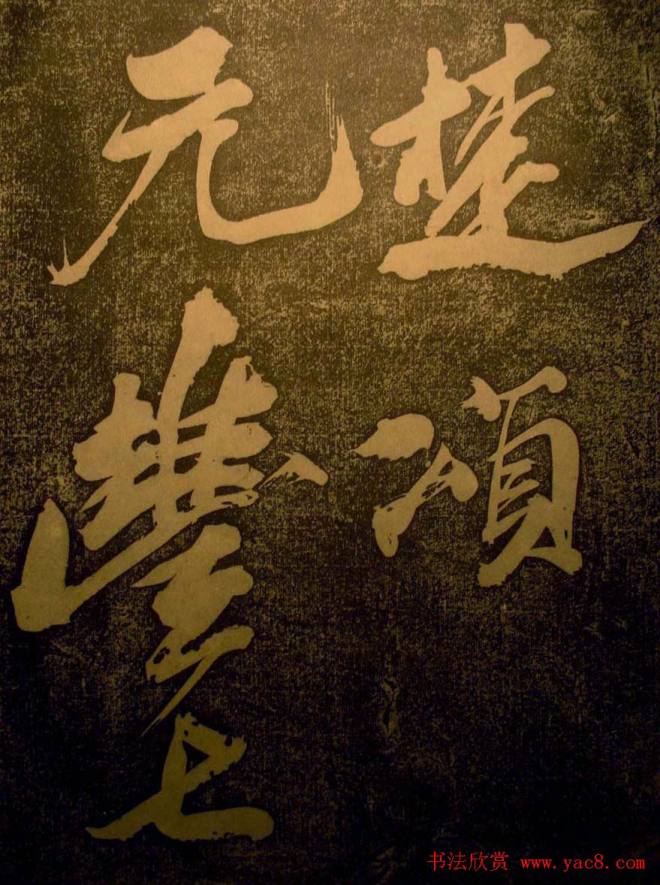 楚項
元豐上
书法欣赏 www.yac8.com